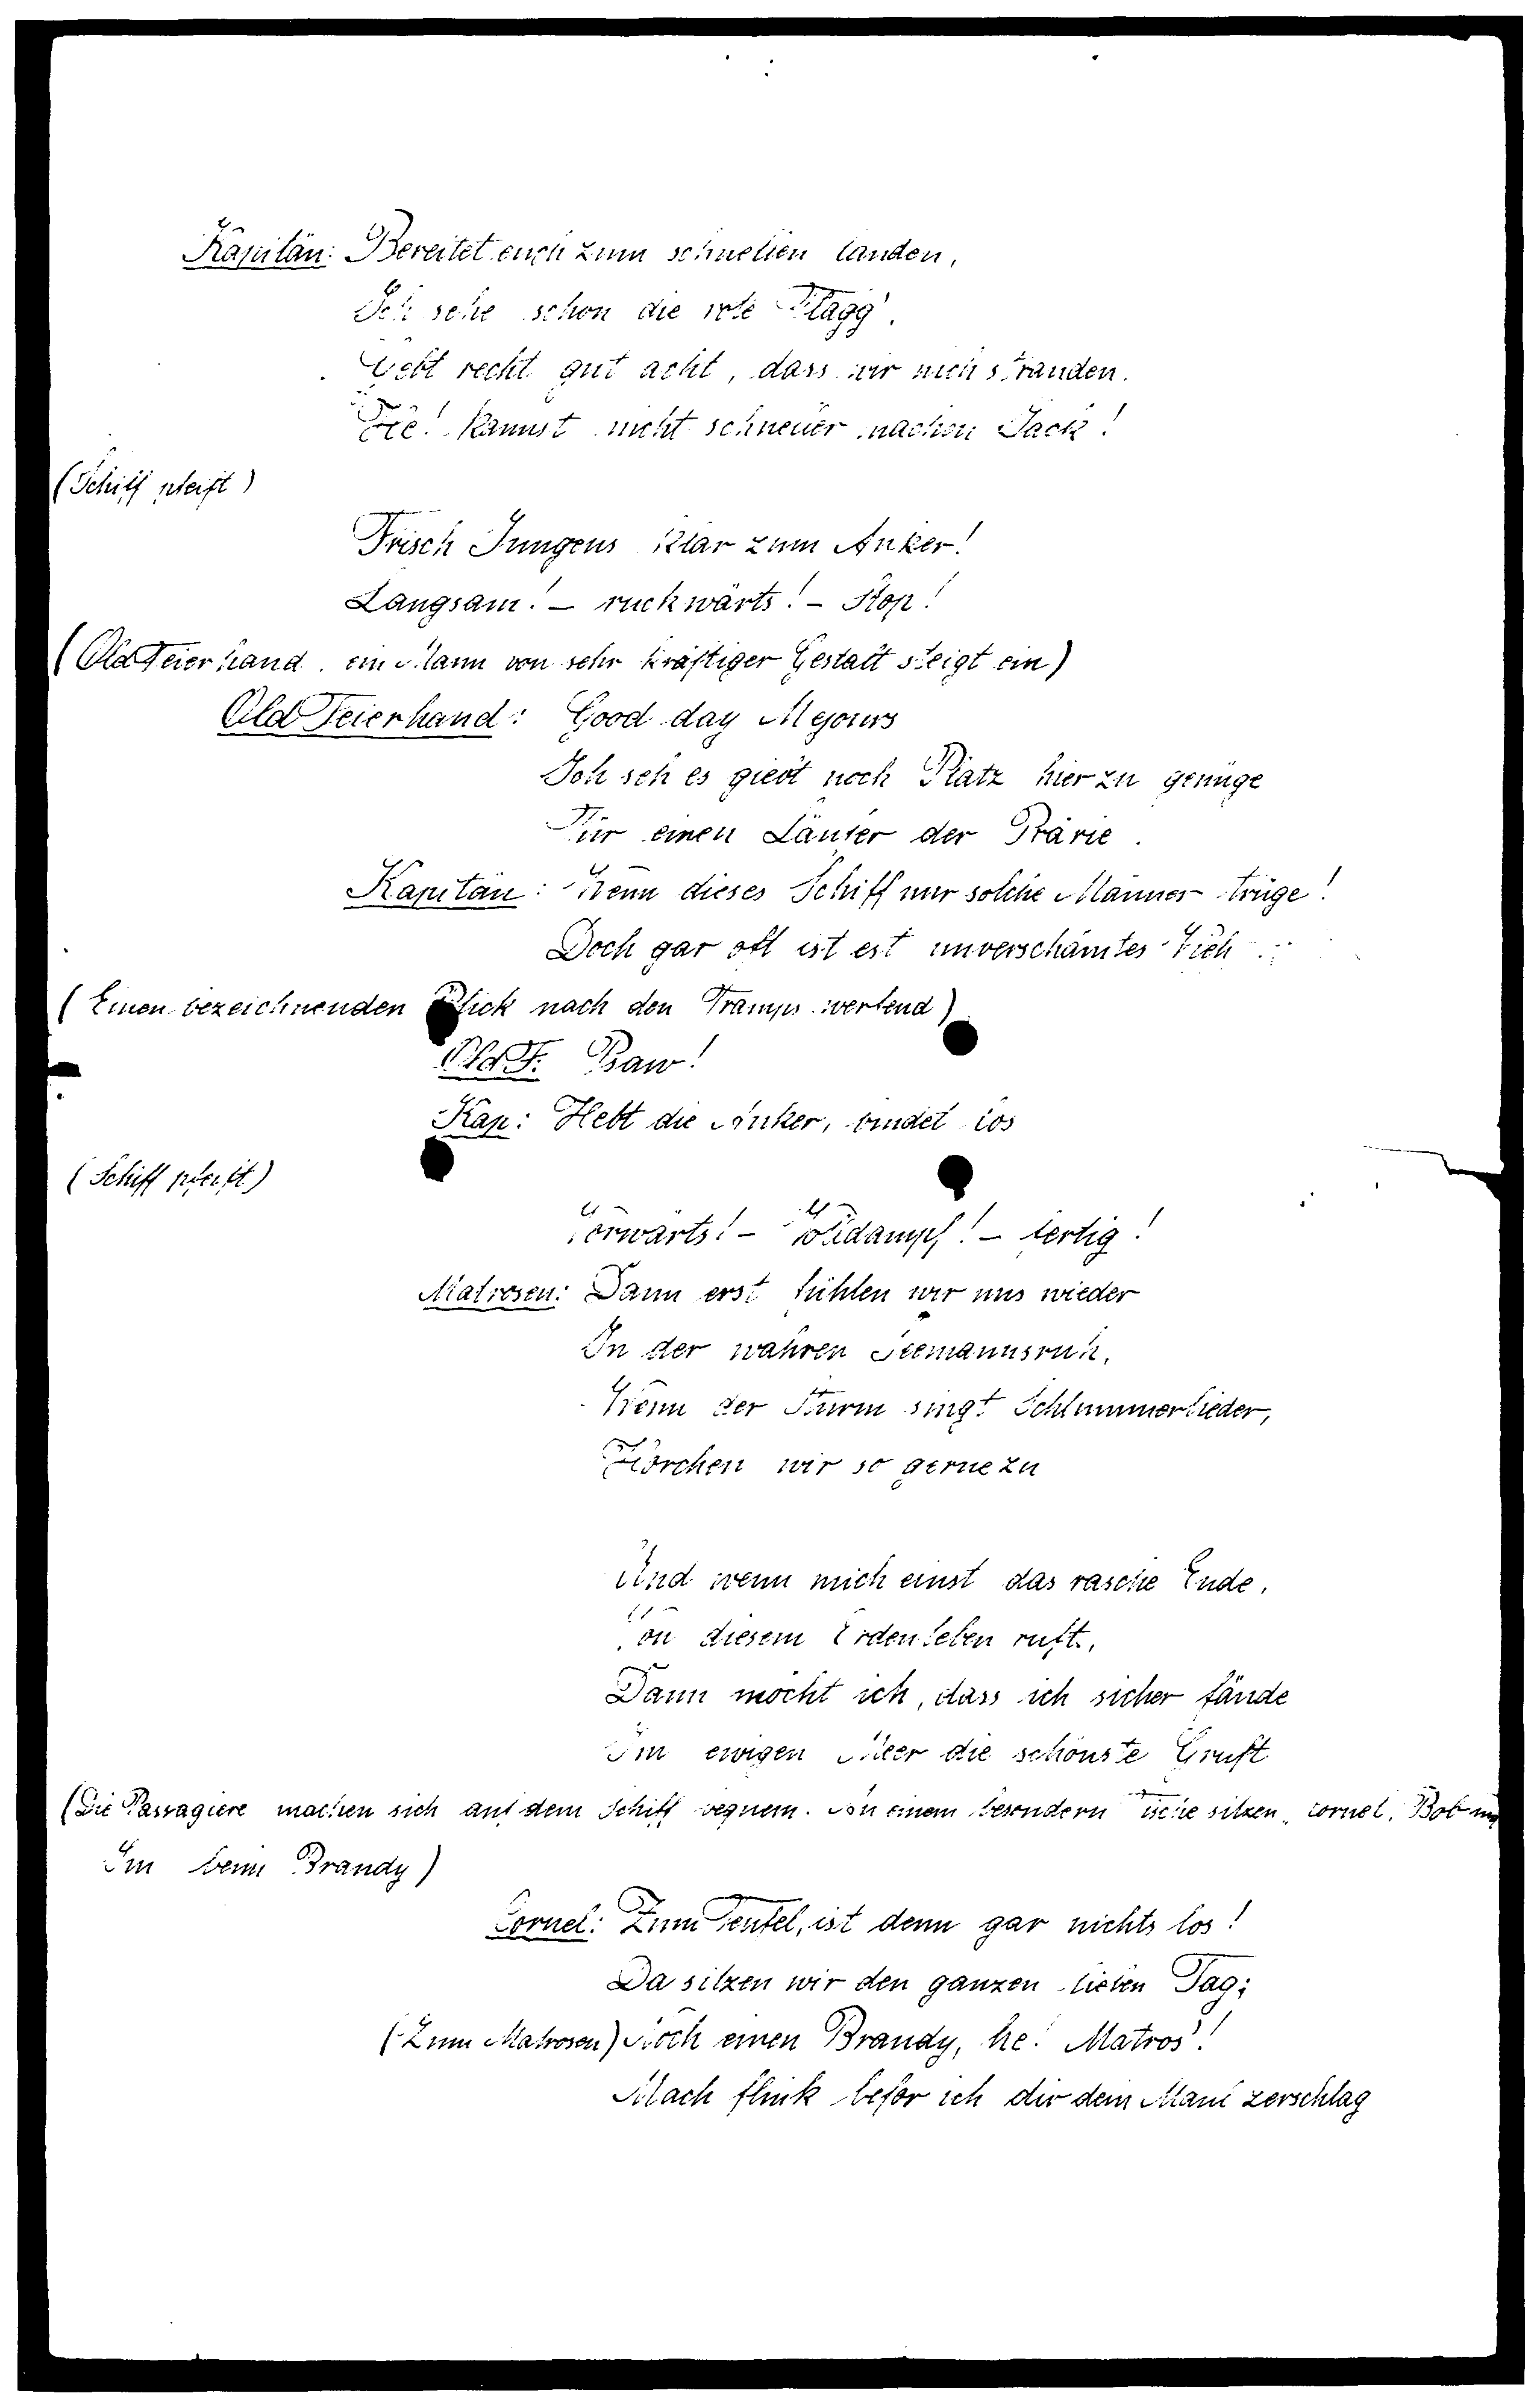 Kapitän: Bereitet euch zum schnellen landen,
Ich sehe schon die rote Flagg'.
Gebt recht gut acht, dass wir nich stranden.
He! Kannst nicht schneller machen Jack!
(Schiff pfeift)
Frisch Jungens klar zum Anker!
Langsam! – ruckwärts! – Stop!
(Old Feierhand, ein Mann von sehr kräftiger Gestalt steigt ein)
Old Feierhand: Good day
Ich seh es giebt noch Platz hier zu genüge
Für einen Läufer der Prärie.
Kapitän: Wenn dieses Schiff nur solche Männer trüge!
Doch gar oft ist est unverschämtes Vieh
(Einen bezeichnenden Blick nach den Tramps werfend)
Old F. Psaw!
Kap: Hebt die Anker, bindet los
(Schiff pfeift)
Vorwärts! – Volldampf! – fertig!
Matrosen: Dann erst fühlen wir uns wieder
In der wahren Seemannsruh,
Wenn der Sturm singt Schlummerlieder,
Horchen wir so gerne zu
Und wenn mich einst das rasche Ende,
Von diesem Erdenleben ruft,
Dann möcht ich, dass ich sicher fände
Im ewigen Meer die schönste Gruft
(Die Passagiere machen sich auf dem Schiff beqnem. An einem besondern Tische sitzen, Cornel, Bob und
beim Brandy)
Cornel: Zum Teufel, ist denn gar nichts los!
Da sitzen wir den ganzen lieben Tag;
(Zum Matrosen) Noch einen Brandy, he! Matros'!
Mach flink befor ich dir dein Maul zerschlag